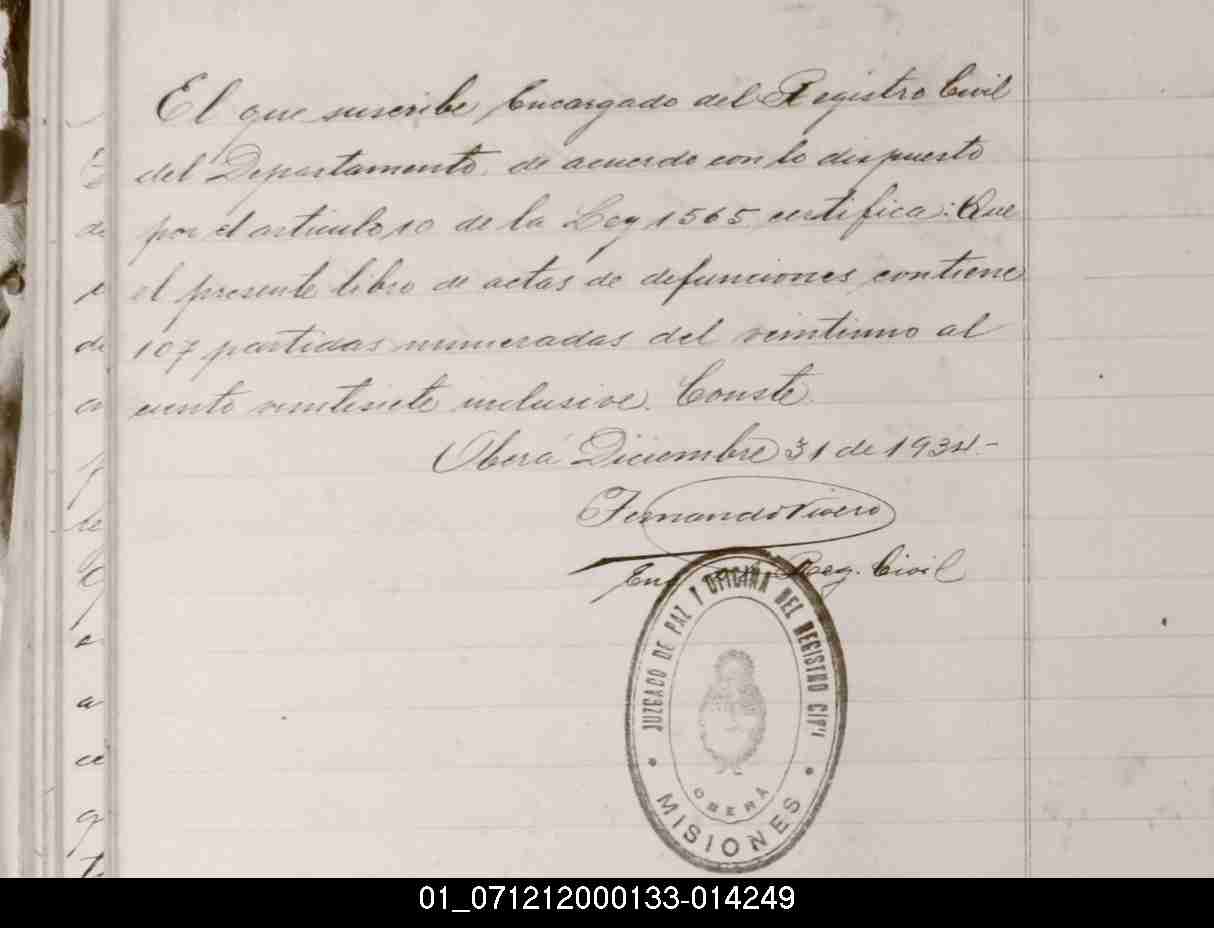 El que suscribe, Encargado del Registro Civil
del Departamento, de acuerdo con lo dispuesto
por el articulo 10 de la Ley 1565, certifica: Que
el presente libro de actas de defunciones, contiene
107 partidas numeradas del veintiuno al
ciento veintisiete inclusive. Conste.
Oberá Diciembre 31 de 1934.-
Fernando Vivero
Enc Reg. Civil
JUZGADO DE PAZ Y OFICINA DEL REGISTRO CIVI
OBERA
MISIONES
01_071212000133-014249